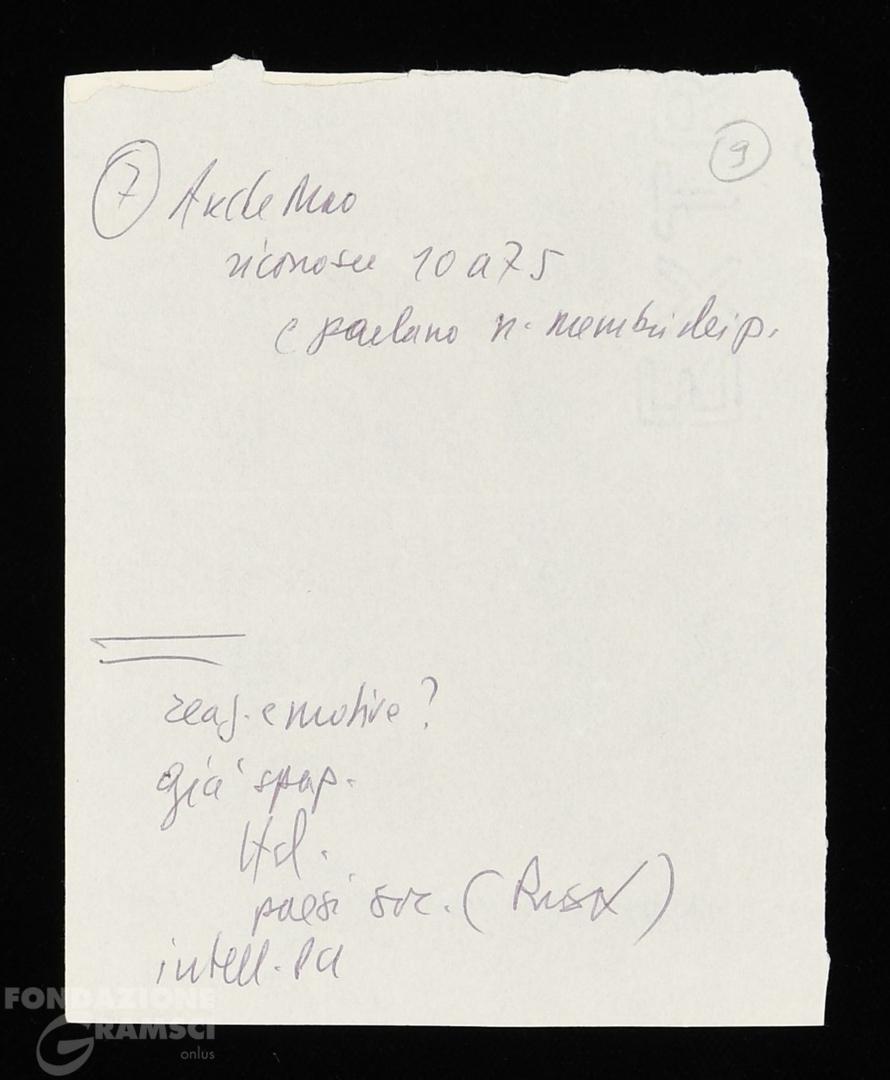 9
7 Anche Mao
riconosce 10 a 75
e parlano n. membri dei p.
reaz. emotive?
già spap.
Ital.
paesi soc. (Russa)
intell. PCI
FONDAZIONE
GRAMSCI
onlus